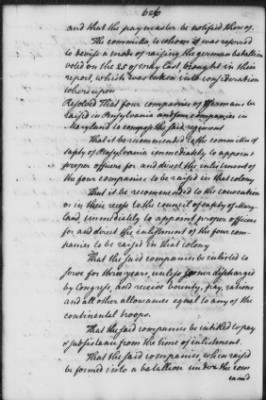 626
and that the pay master be notified thereof.
The committee, to whom it was referred
to devise a mode of raising the german battalion
voted on the 25 of may last, brought in their
report, which was taken into consideration
whereupon
Resolved That four companies of Germans be
raised in Pensylvania and four companies in
Maryland to compose the said regiment
That it be recommended to the committee of
safety of Pensylvania immediately to appoint
proper officers for and direct the inlistment of
the four companies to be raised in that colony
That it be recommended to the convocation
or in their recess to the council of safety of Mary
land, immediately to appoint proper officers
for and direct the inlistment of the four com-
panies to be raised in that colony
That the said companies be enlisted to
serve for three years, unless sooner discharged
by Congress, and receive bounty, pay, rations
and all other allowances equal to any of the
continental troops.
That the said companies be intitled to pay
& subsistance from the time of inlistment.
That the said companies, when raised
be formed into a batallion under the com
mand